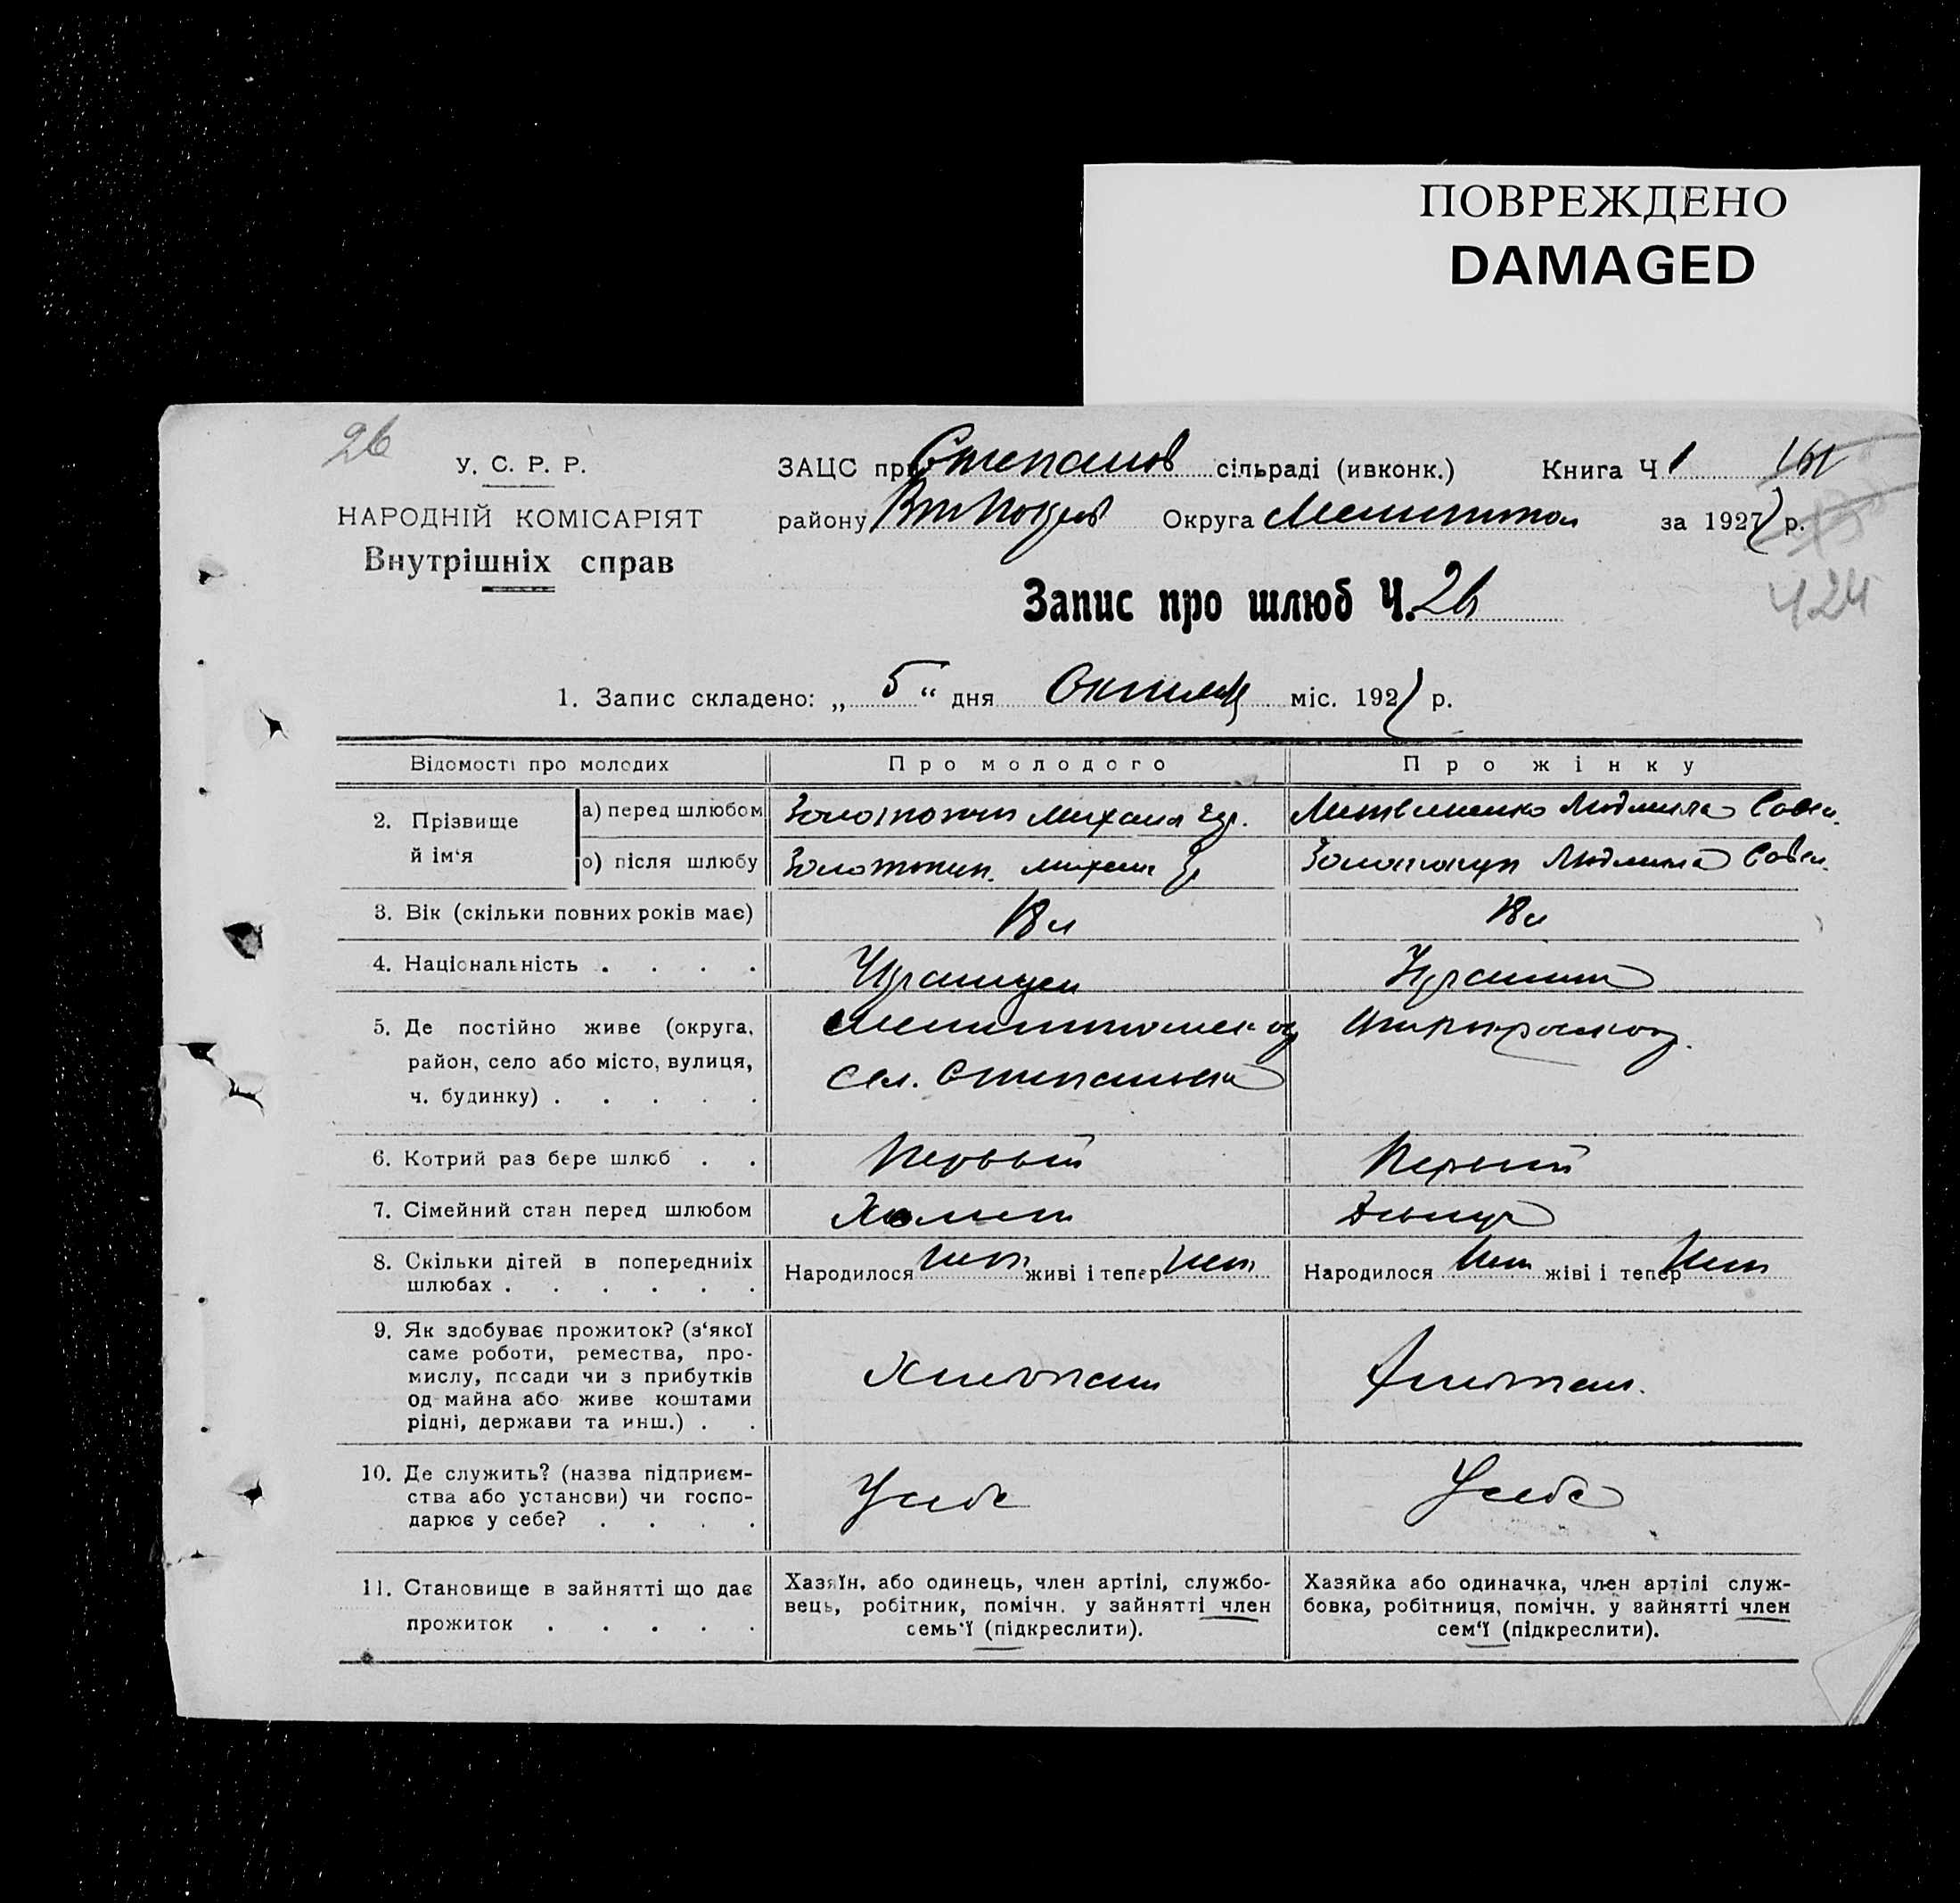 ПОВРЕЖДЕНО
DAMAGED
26
У. С. Р. Р.
НАРОДНІЙ КОМІСАРІЯТ
Внутрішніх справ
ЗАЦС при Степанов сільраді (ивконк.) Книга Ч 1
району Округа Мелитопол за 1927 р.
424
Запис про шлюб Ч. 26
1. Запис складено: „ 5 “ дня міс. 1927 р.
Відомості про молодих Про молодого Про жінку
2. Прізвище й ім‘я
а) перед шлюбом Михаил Литвиненко Людмила Савел.
о) після шлюбу Михаил Людмила Савел.
3. Вік (скільки повних років має) 18 л 18 л
4. Національність . . . . Украинец Украинка
5. Де постійно живе (округа,
район, село або місто, вулиця,
ч. будинку) . . . . .
сел. Степановка
6. Котрий раз бере шлюб . . Первый Первый
7. Сімейний стан перед шлюбом Холост Девица
8. Скільки дітей в попередниіх
шлюбах . . . . . .
Народилося нет живі і тепер нет Народилося нет жіві і тепер нет
9. Як здобуває прожиток? (з‘якої
саме роботи, ремества, про-
мислу, посади чи з прибутків
од майна або живе коштами
рідні, держави та инш.) . .
Хлебопаш Хлебопаш.
10. Де служить? (назва підприєм-
ства або установи) чи госпо-
дарює у себе? . . . .
У себе У себе
11. Становище в зайнятті що дає
прожиток . . . . .
Хазяїн, або одинець, член артілі, службо-
вець, робітник, помічн. у зайнятті член
семь‘ї (підкреслити).
Хазяйка або одиначка, член артілі служ-
бовка, робітниця, помічн. у зайнятті член
сем‘ї (підкреслити).